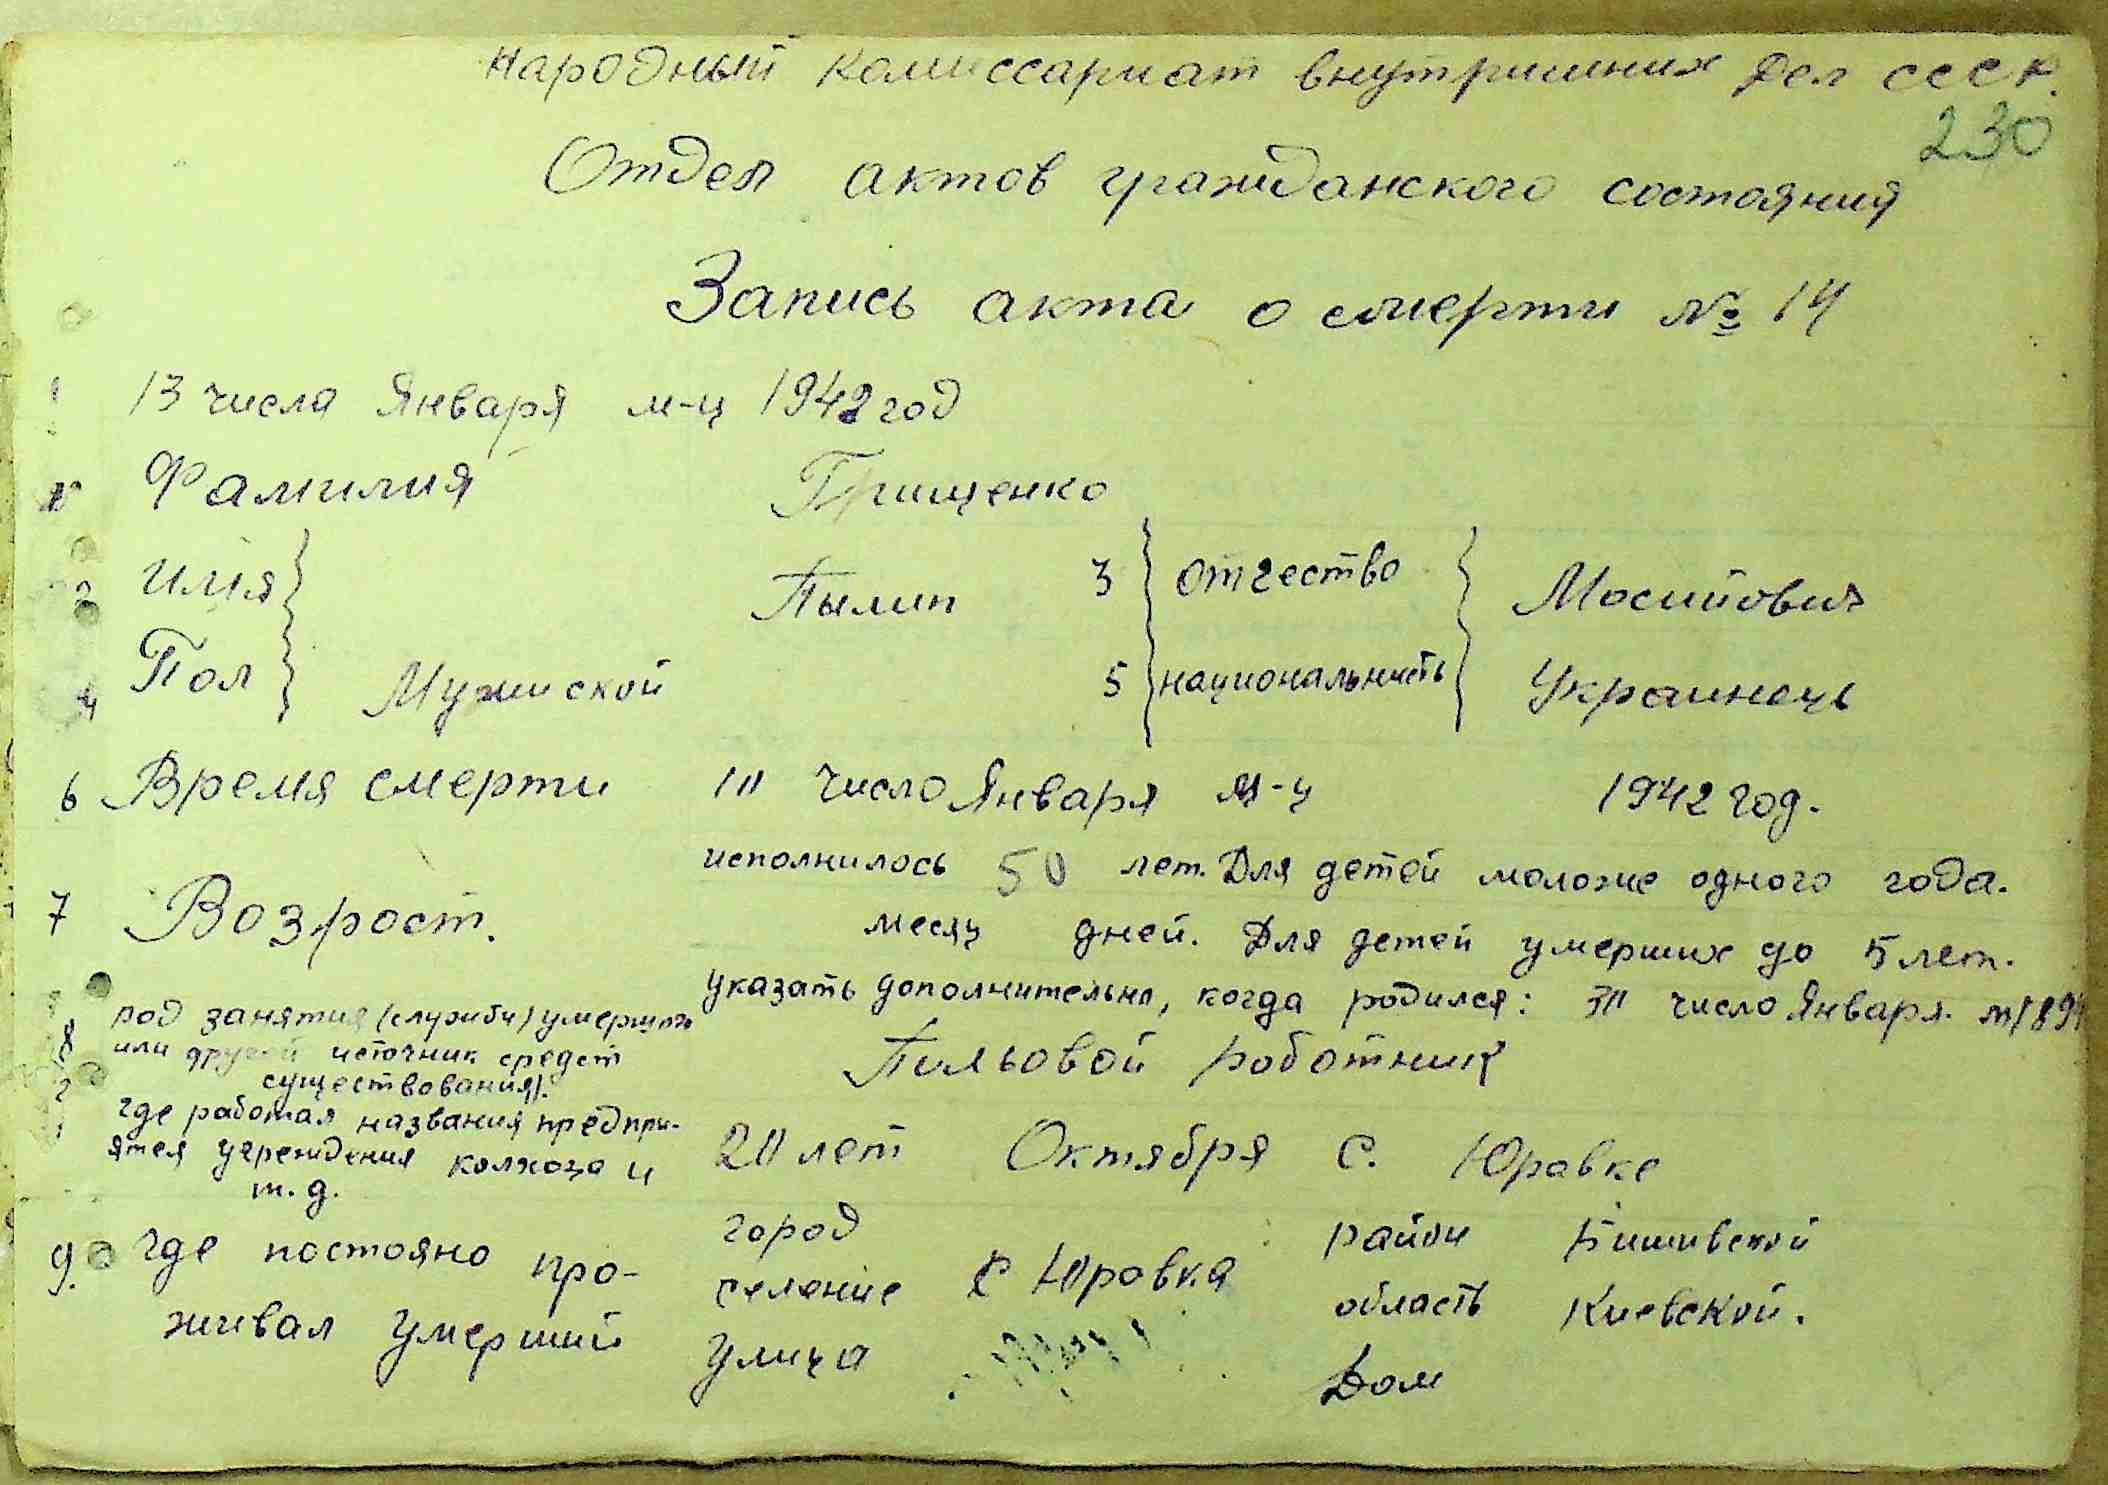 Народный Комиссариат внутришних дел СССР.
230
Отдел актов гражданского состояния
Запись акта о смерти № 14
1 13 числа Января м-ц 1942 год
Фамилия Грищенко
2 имя Пылип 3 отчество Мосийович
4 Пол Мужиской 5 национальность Украинець
6 Время смерти 10 число Января м-ц 1942 год.
исполнилось 50 лет. Для детей моложе одного года.
7 Возрост. месяц дней. Для детей умерших до 5 лет.
указать дополнительно, когда родился: 30 число Января
8 род занятия (служби) умершого
или другой источник средст
существования). Пильовой роботник
где работал названия предпри-
ятея учреждения колхоза и
т. д. 20 лет Октября С. Юравке
9. где постояно про-
живал умерший
город
селение С Юровка
улица
район Бишивской
область Киевской.
Дом